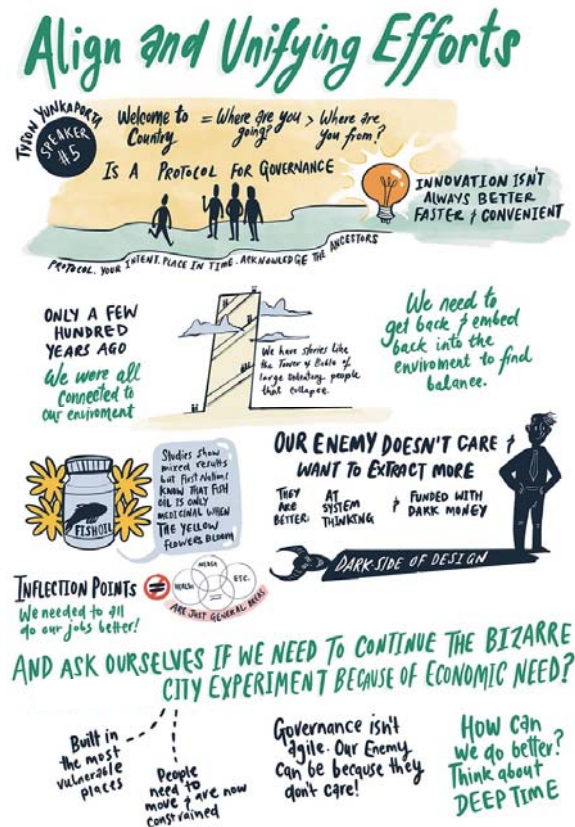 Align and Unifying Efforts
TYSON YUNKAPORTA
SPEAKER
#5
Welcome to
Country
= Where are you
going?
> Where are
you from?
IS A PROTOCOL FOR GOVERNANCE
INNOVATION ISN'T
ALWAYS BETTER
FASTER & CONVENIENT
PROTOCOL. YOUR INTENT. PLACE IN TIME. ACKNOWLEDGE THE ANCESTORS
ONLY A FEW
HUNDRED
YEARS AGO
We were all
connected to
our enviroment
We have stories like
the Tower of Bable of
large
people
that collapse.
We need to
get back & embed
back into the
enviroment to find
balance.
FISH OIL
Studies show
mixed results
but First Nations
KNOW THAT FISH
OIL IS ONLY
MEDICINAL WHEN
THE YELLOW
FLOWERS BLOOM
OUR ENEMY DOESN'T CARE &
WANT TO EXTRACT MORE
THEY
ARE
BETTER:
AT
SYSTEM
THINKING
& FUNDED WITH
DARK MONEY
DARK-SIDE OF DESIGN
INFLECTION POINTS
We needed to all
do our jobs better!
=
HEALTH
MEDIA
ETC.
ARE JUST GENERAL AREAS
AND ASK OURSELVES IF WE NEED TO CONTINUE THE BIZARRE
CITY EXPERIMENT BECAUSE OF ECONOMIC NEED?
Built in
the most
vulnerable
places
People
need to
move & are now
constrained
Governance isn't
agile. Our Enemy
can be because they
don't care!
HOW CAN
we do better?
Think about
DEEP TIME